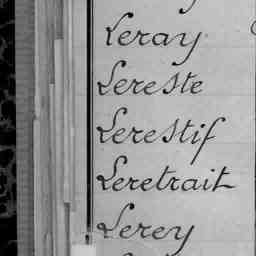 Leray
Lereste
Lerestif
Leretrait
Lerey